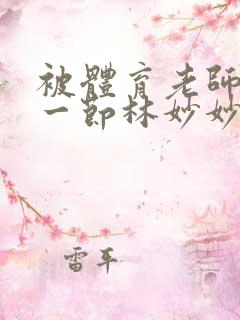 被體育老師
一節林妙妙
雷平